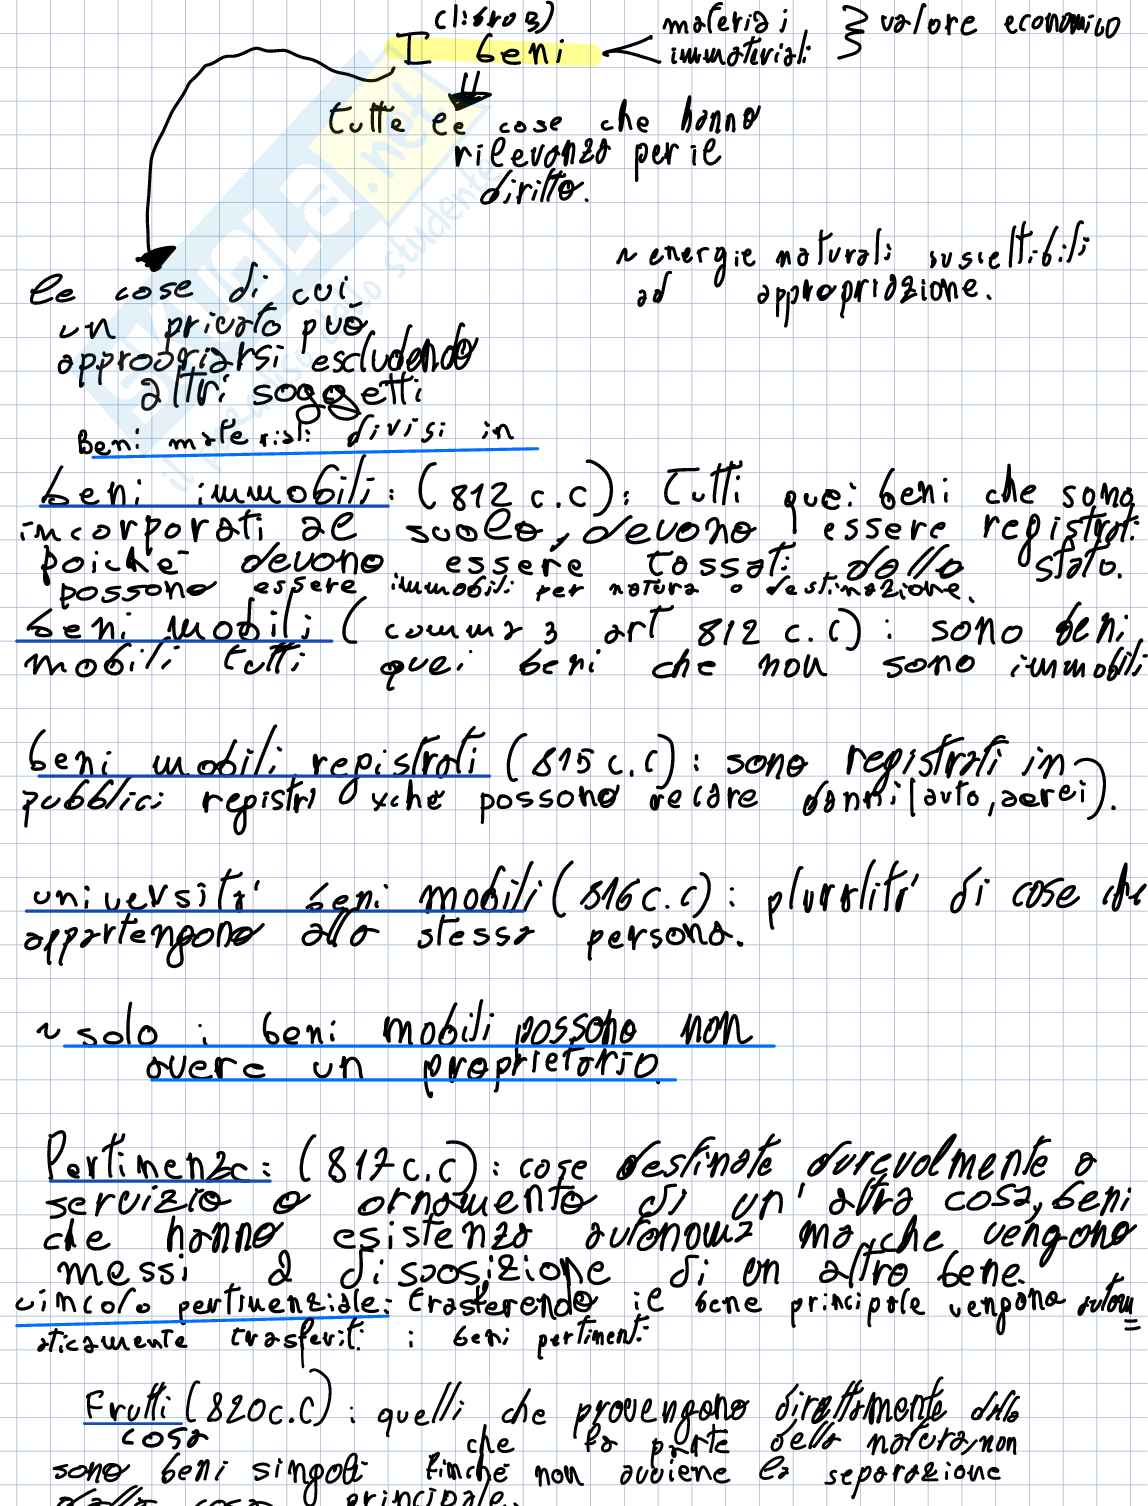 (libro 3)
I beni
materiali
immateriali
valore economico
tutte le cose che hanno
rilevanza per il
diritto.
~ energie naturali suscettibili
ad appropriazione.
le cose di cui
un privato può
appropriarsi escludendo
altri soggetti
Beni materiali divisi in
beni immobili: (812 c.c): Tutti quei beni che sono
incorporati al suolo, devono essere registrati
poiché devono essere tassati dallo stato.
possono essere immobili per natura o destinazione.
beni mobili (comma 3 art 812 c.c): sono beni
mobili tutti quei beni che non sono immobili
beni mobili registrati (815 c.c): sono registrati in
pubblici registri xché possono recare danni (auto, aerei).
università beni mobili (816 c.c): pluralità di cose che
appartengono alla stessa persona.
~ solo i beni mobili possono non
avere un proprietario.
Pertinenze: (817 c.c): cose destinate durevolmente a
servizio o ornamento di un'altra cosa, beni
che hanno esistenza autonoma ma che vengono
messi a disposizione di un altro bene.
vincolo pertinenziale: trasferendo il bene principale vengono autom
aticamente trasferiti i beni pertinenti
Frutti (820 c.c): quelli che provengono direttamente dalla
cosa che fa parte della natura, non
sono beni singoli finché non avviene la separazione
dalla cosa principale.
SKUOLA.net